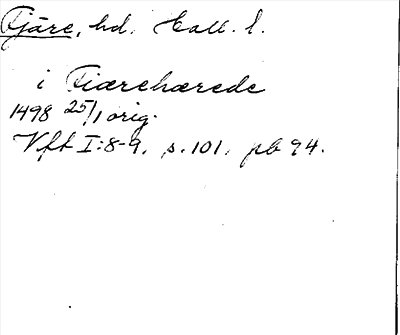 Fjäre, hd. Hall. l.
i Fiærehærede
1498 25/1 orig.
Vft I:8-9, s. 101, pb 94.